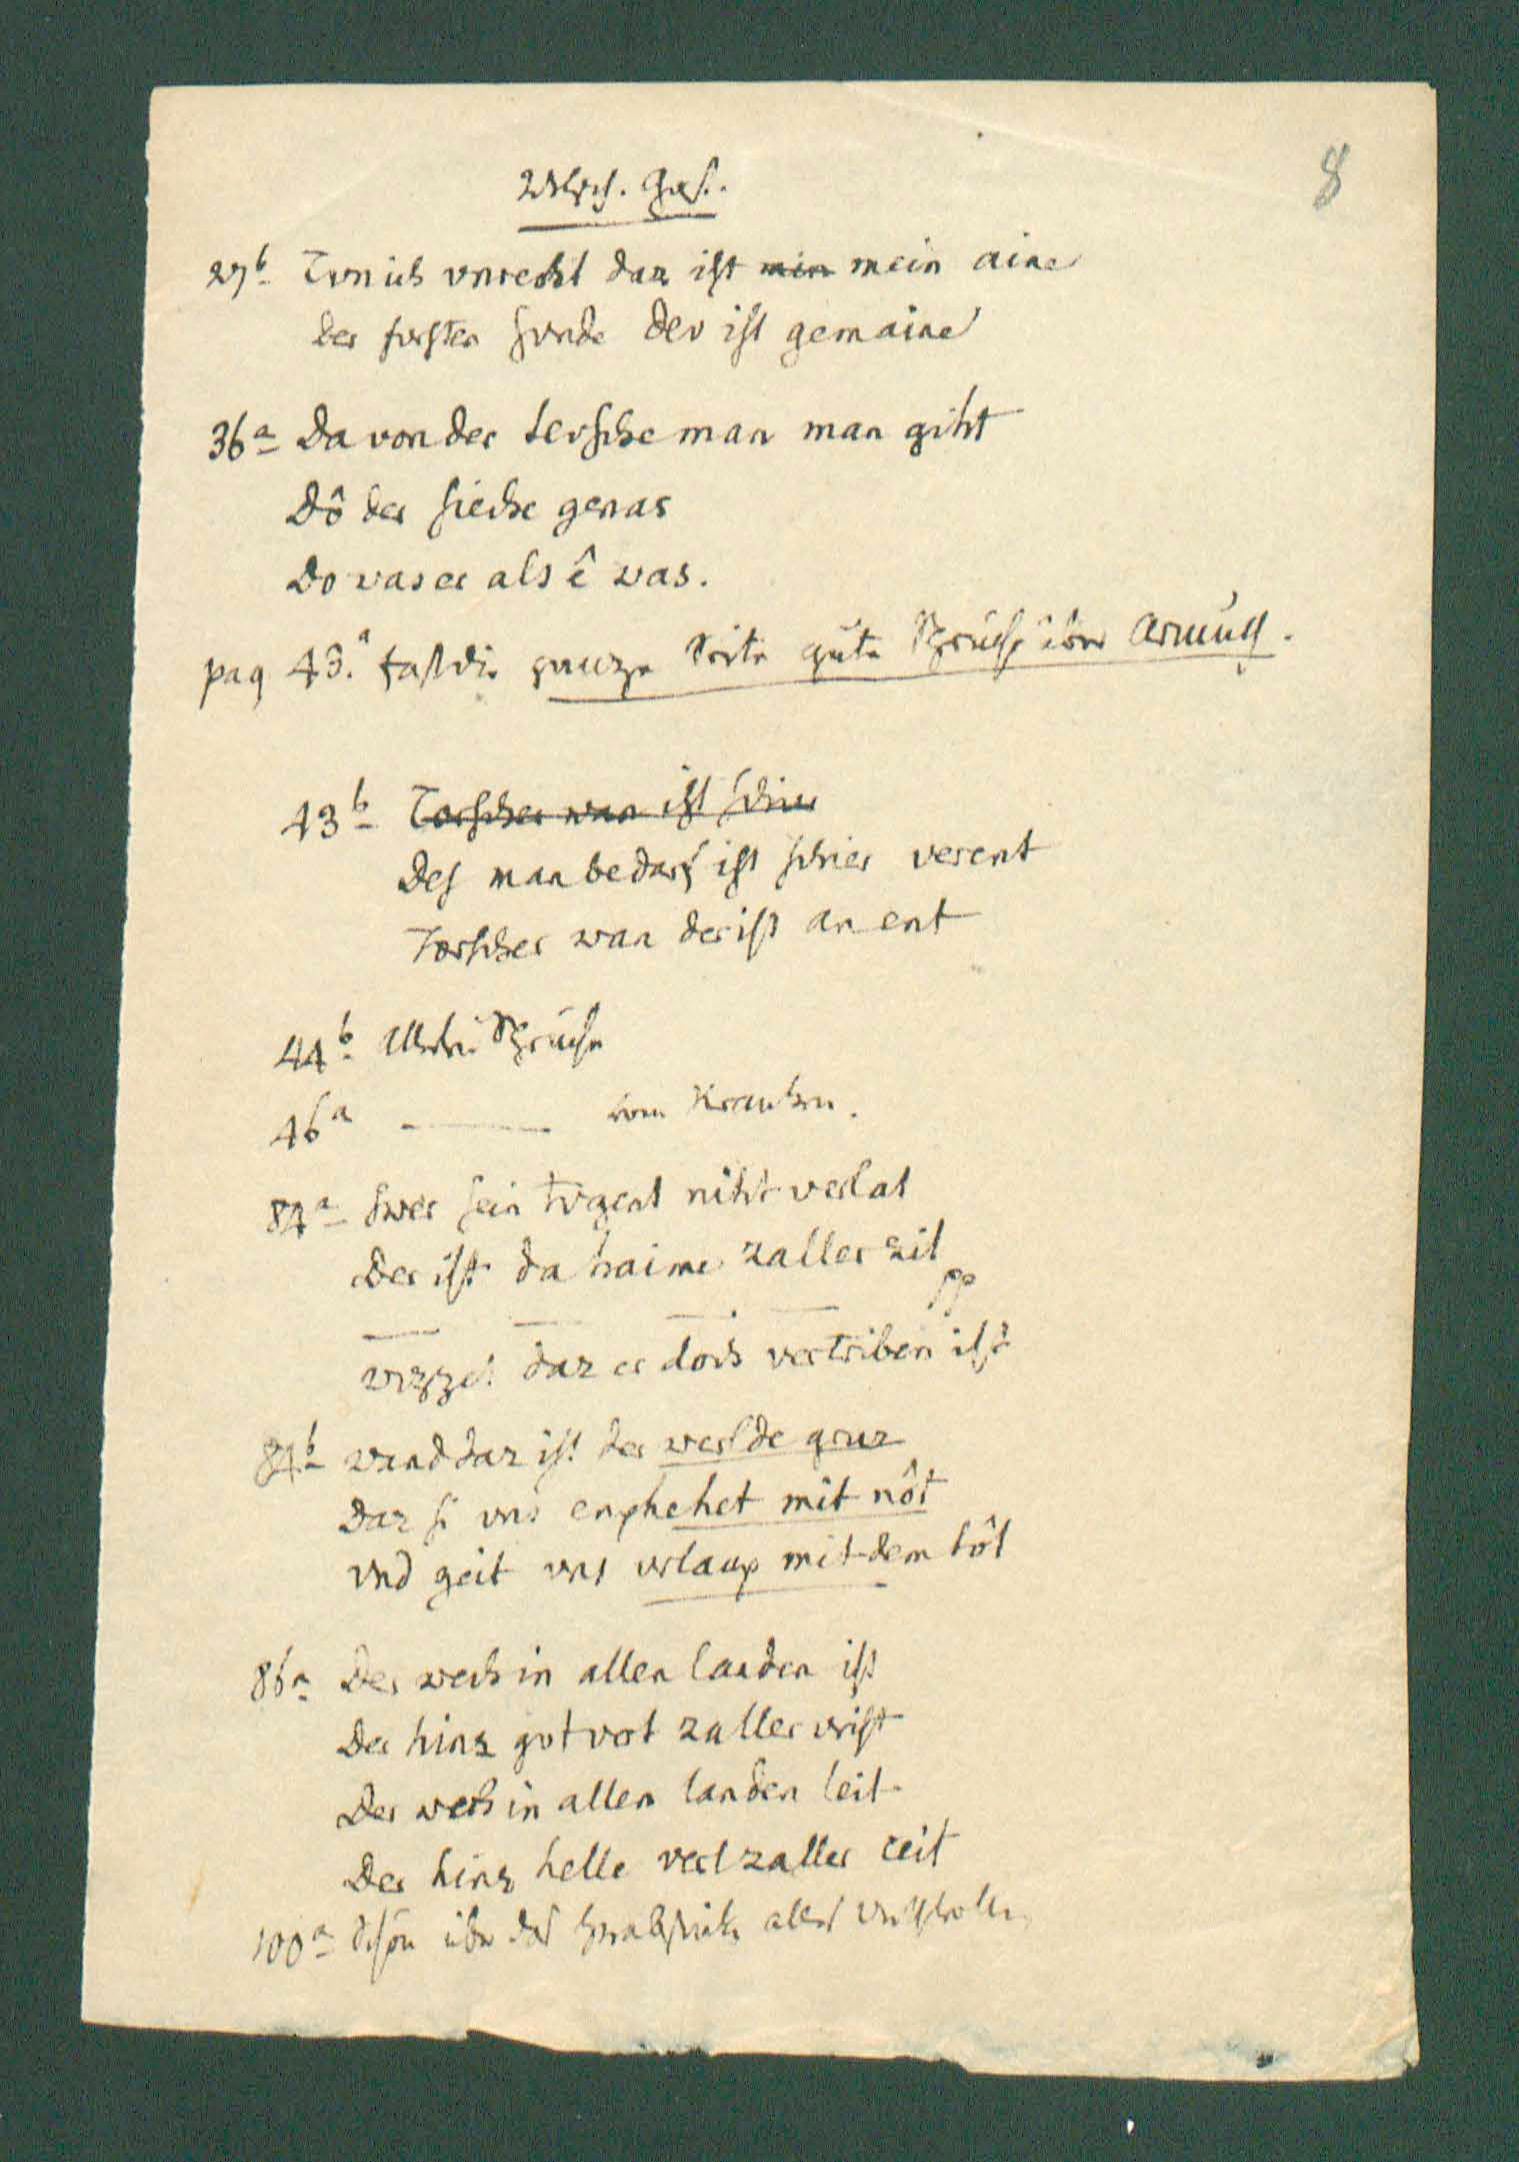 8
Welsch. Gast.
27b Tvn ich vnrecht daz ist min mein aine
der fvrsten svnde dev ist gemaine
36a Da von der tevsche man man giht
Dô der sieche genas
Do was er als ê was.
pag 43.a fast die ganze Seite gute Sprüche über Armuth.
43b Torscher wan ist schier
Des man bedarf ist schier verent
Torscher wan der ist an ent
44b Allerlei Sprüche
46a ——— vom Kranken.
84a Swer sein tvgent niht verlat
Der ist da haime zaller zit
pp
— — — —
wizzet daz er doch vertriben ist
84b wand daz ist der werlde gruz
Daz si vns enphehet mit nôt
vnd geit vns vrlaup mit dem tôt
86a Der wech in allen landen ist
Der hinz got vert zaller vrist
Der wech in allen landen leit
Der hinz helle vert zaller ceit
100a Schön über das